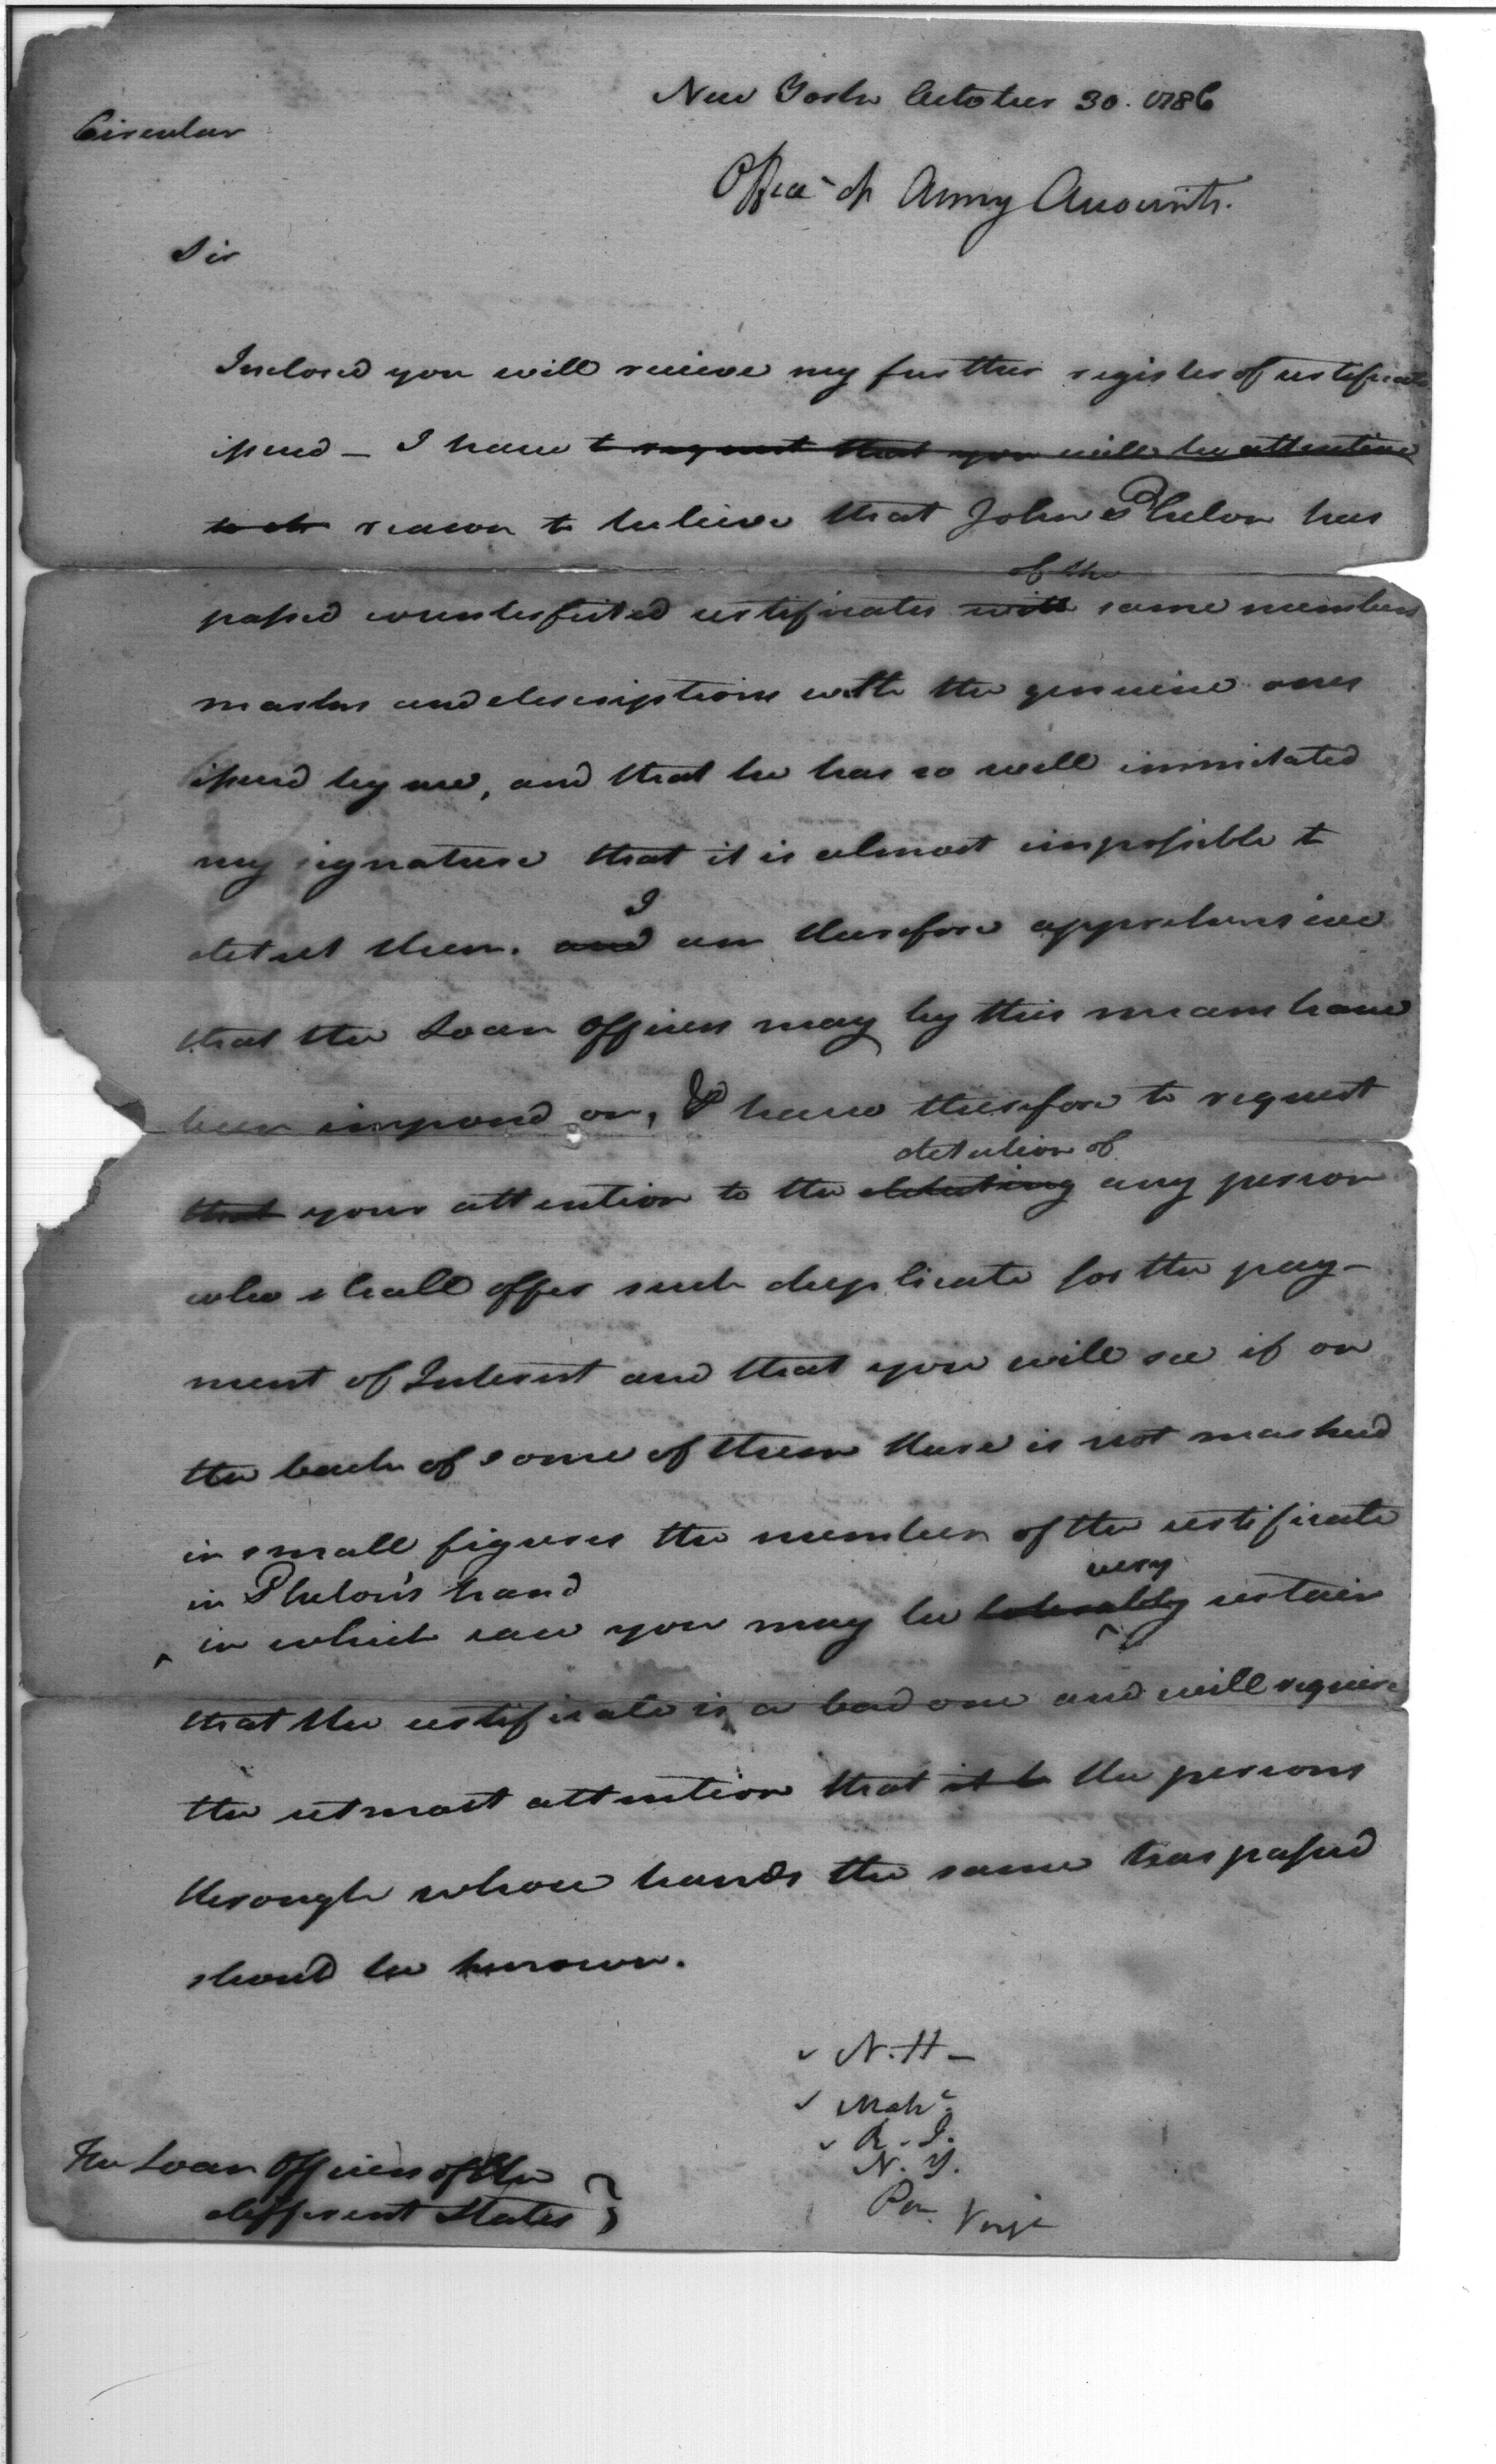 New York October 30. 1786
Circular
Office of Army Accounts.
Sir
Inclosed you will recieve my further register of certificates
issued — I have to request that you will be attentive
reason to believe that John Phelon has
of the
passed counterfeited certificates with same numbers
marks and descriptions with the genuine ones
issued by me, and that he has so well immitated
my signature that it is almost impossible to
I
detect them. and am therefore apprehensive
that the Loan Officers may by this means have
been imposed on, & have therefore to request
detection of
that your attention to the detecting any person
who shall offer such duplicate for the pay-
ment of Interest and that you will see if on
the back of some of them there is not marked
in small figures the number of the certificate
in Phelon's hand
very
in which case you may be tolerably certain
that the certificate is a bad one and will require
the utmost attention that it b the persons
through whose hands the same has passed
should be known.
N. H —
R. I.
N. Y.
The Loan Officers of the
different States }
Pen.
Virga